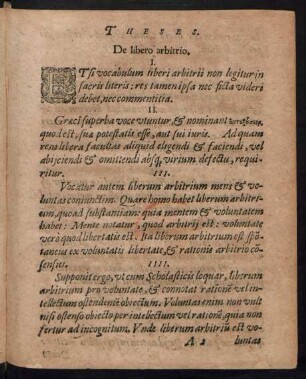 THESES.
De libero arbitrio.
I.
ETsi vocabulum liberi arbitrii non legitur in
sacris literis: res tamen ipsa nec ficta videri
debet, nec commentitia.
II.
Græci superba voce vtuntur, & nominant
quod est, suæ potestatis esse, aut sui iuris. Ad quam
rem libera facultas aliquid eligendi & faciendi, vel
abijciendi & omittendi absq; virium defectu, requi-
ritur.
III.
Vocatur autem liberum arbitrium mens & vo-
luntas coniunctim. Quare homo habet liberum arbitri-
um, quoad substantiam: quia mentem & voluntatem
habet: Mente notatur, quod arbitrij est: voluntate
vero quod libertatis est. Ita liberum arbitrium est spō-
taneus ex voluntatis libertate, & rationis arbitrio cō-
sensus.
IIII.
Supponit ergo, vt cum Scholasticis loquar, liberum
arbitrium pro voluntate, & connotat rationē vel in-
tellectum ostendentē obiectum. Voluntas enim non vult
nisi ostenso obiecto per intellectum vel rationē. quia non
fertur ad incognitum. Vnde liberum arbitriū est vo-
A 2 luntas